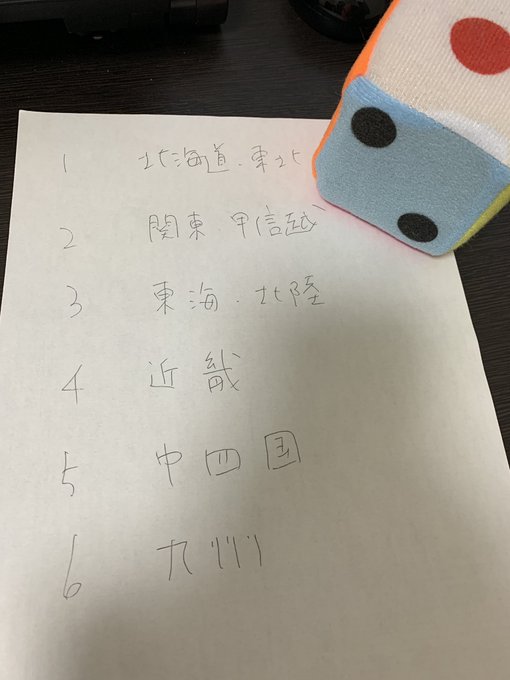 1 北海道・東北
2 関東 甲信越
3 東海・北陸
4 近畿
5 中四国
6 九州